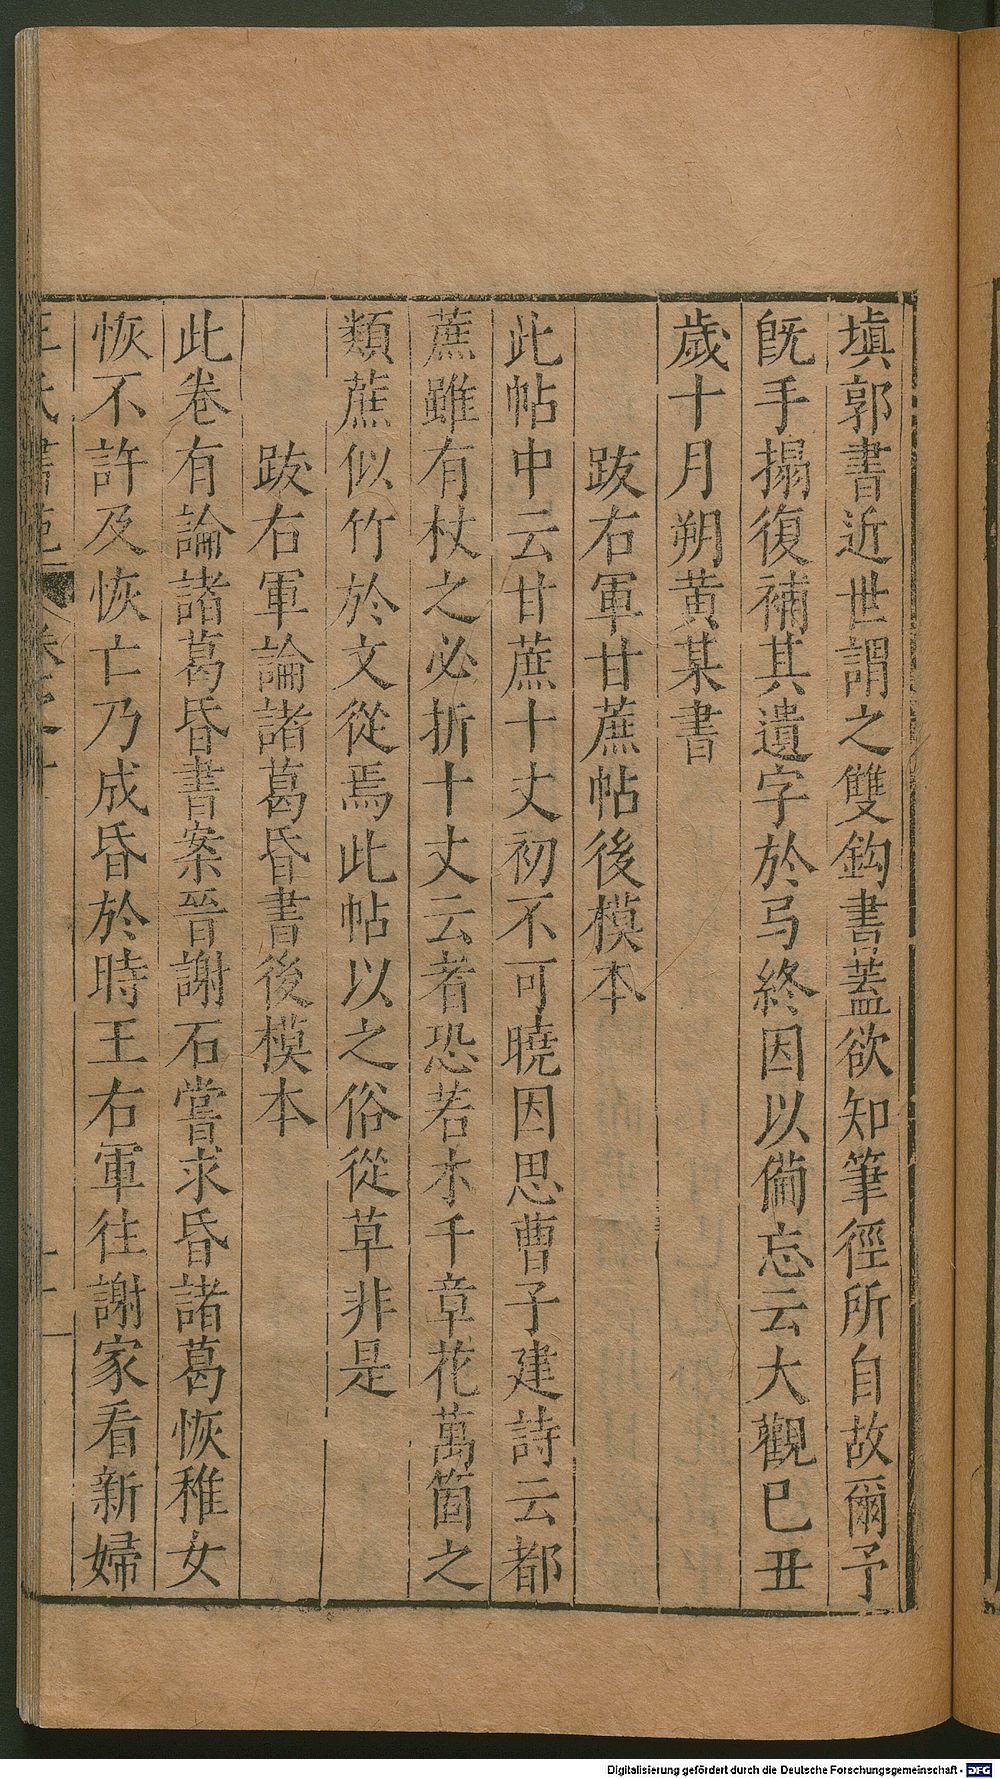 塡郭書近世謂之雙鈎書蓋欲知筆徑所自故爾予
旣手搨復補其遺字於弓終因以備忘云大觀巳丑
歲十月朔黄某書
跋右軍甘蔗帖後模本
此帖中云甘蔗十丈初不可曉因思曹子建詩云都
蔗雖有杖之必折十丈云者恐若木千章花萬箇之
類蔗似竹於文從焉此帖以之俗從草非是
跋右軍論諸葛昏書後模本
此卷有論諸葛昏書案晉謝石嘗求昏諸葛恢稚女
恢不許及恢亡乃成昏於時王右軍往謝家看新婦
王氏書苑 卷之十
Digitalisierung gefördert durch die Deutsche Forschungsgemeinschaft - DFG